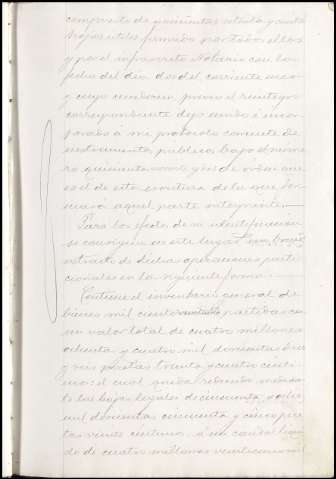 compuesto de quinientas ochenta y cuatro
hojas utiles firmado por todos ellos
y por el infrascrito Notario con la
fecha del dia dos del corriente mes
y cuyo cuaderno previo el reintegro
correspondiente dejo unido e incor-
porado á mi protocolo corriente de
instrumentos públicos bajo el núme-
ro quinientos que es de orden an-
es el de esta escritura de la que for-
mará aquel parte integrante.
Para los efectos de su identificacion
se consigna en este lugar
estracto de dichas operaciones parti-
cionales en la siguiente forma.
Contiene el inventario general de
bienes mil ciento partidas con
un valor total de cuatro millones
ochenta y cuatro mil doscientas diez
y seis pesetas treinta y cuatro cénti-
mos: el cual queda reducido mediante
te las bajas legales de cincuenta y ocho
mil doscientas cincuenta y cinco pese-
tas veinte centimos, á un caudal liqui-
do de cuatro millones veinticinco mil